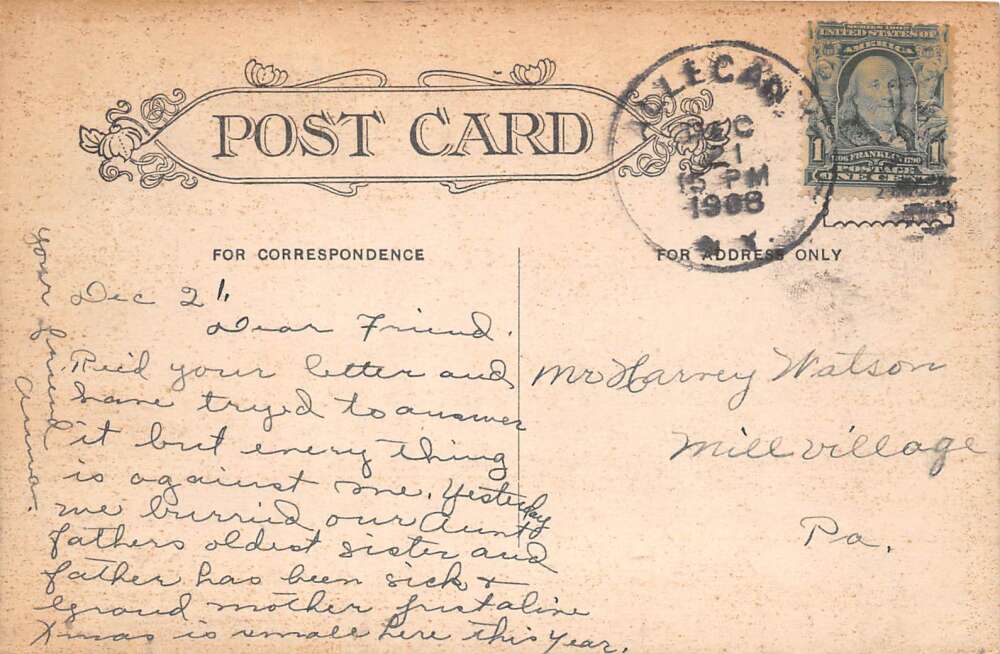 POST CARD
ALLEGANY
DEC
21
15 PM
1908
N.Y.
SERIES 1902
UNITED STATES OF
AMERICA
1706 FRANKLIN 1790
POSTAGE
1 ONE CENT 1
FOR CORRESPONDENCE
FOR ADDRESS ONLY
Dec 21
Dear Friend.
Rec'd your letter and
have tryed to answer
it but every thing
is against me. Yesterday
we burried our Aunt
fathers oldest sister and
father has been sick &
grand mother just aline
Xmas is small here this year.
your friend
Anna.
Mr Harvey Watson
Mill village
Pa.